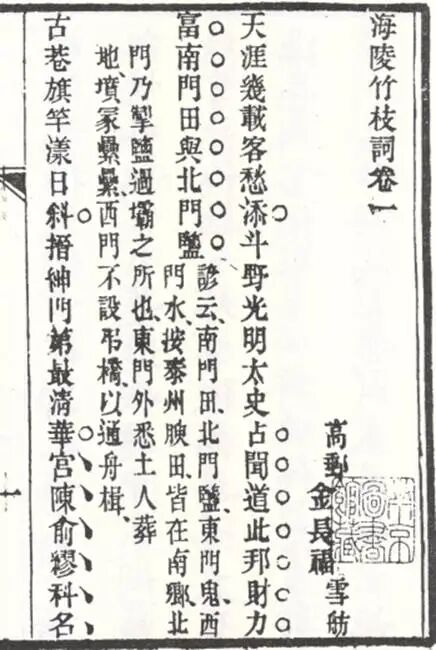 海陵竹枝詞卷一
高郵 金長福 雪舫
天涯幾載客愁添斗野光明太史占聞道此邦財力
富南門田與北門鹽
諺云、南門田、北門鹽、東門鬼、西
門水、按泰州腴田、皆在南鄉、北
門乃掣鹽過壩之所也、東門外悉土人葬
地、墳冢纍纍、西門不設吊橋、以通舟楫、
古巷旗竿漾日斜搢紳門第最清華宮陳俞繆科名
一